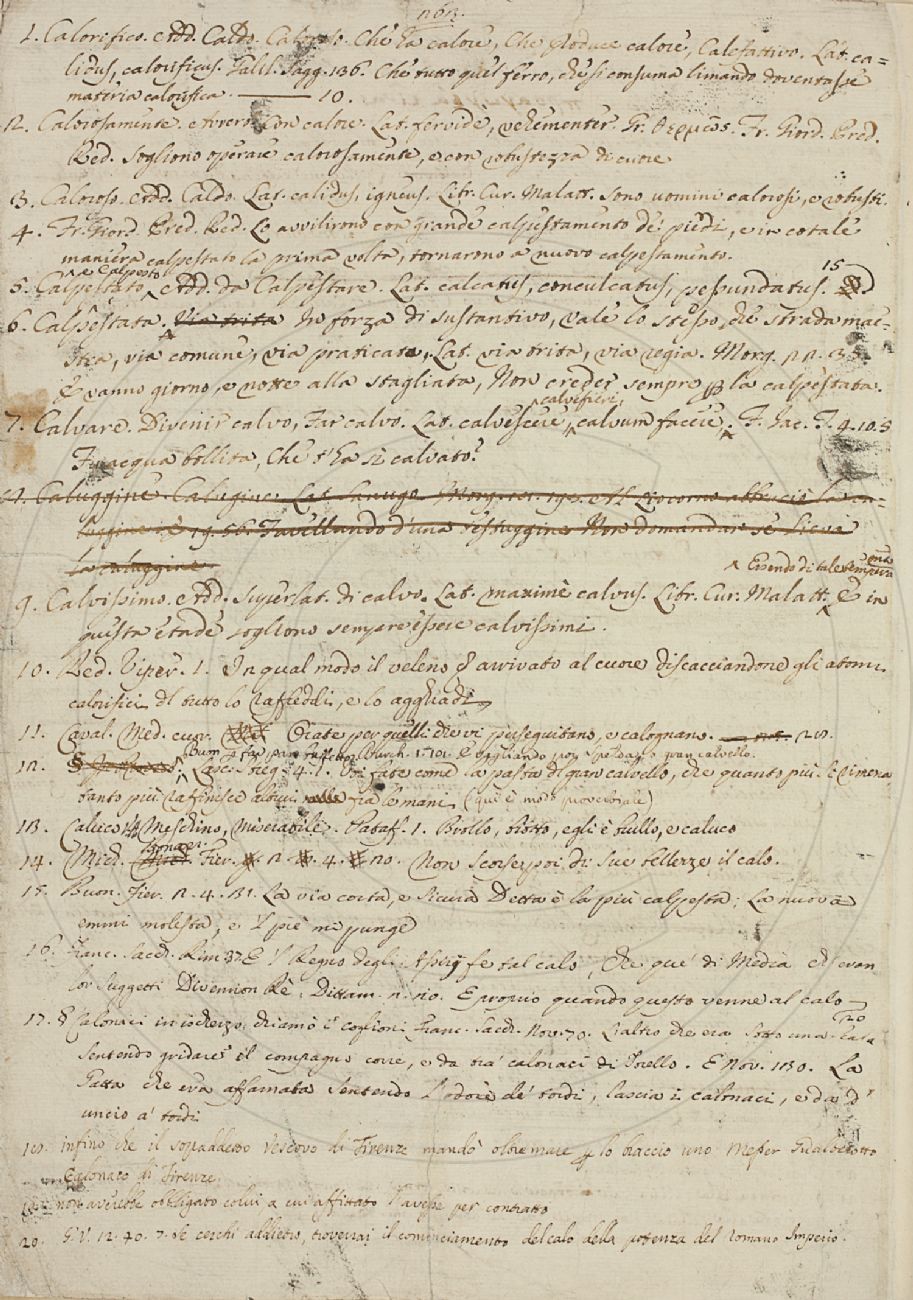 1. Calorifico. Add. Caldo. Caloroso. Che ha calore, Che produce calore, Calefattivo. Lat. ca=
lidus, calorificus. Galil. Sagg. 136. Che tutto quel ferro, che si consuma limando doventasse
materia calorifica. 10.
2. Calorosamente. Avverb. Con calore. Lat. fervide, vehementer. Gr. θερμῶς. Fr. Giord. Pred.
Red. Sogliono operare calorosamente, e con robustezza di cuore
3. Caloroso. Add. Caldo. Lat. calidus, igneus. Libr. Cur. Malatt. Sono uomini calorosi, e robusti.
4. Fr. Giord. Pred. Red. Lo avvilirono con grande calpestamento de' piedi, e in cotale
maniera calpestato la prima volta, tornarono a nuovo calpestamento.
5. Calpestato, e Calpesto Add. da Calpestare. Lat. calcatus, conculcatus, pessundatus. 15
6. Calpestata. Via trita In forza di sustantivo, vale lo stesso, che strada mae-
stra, via comune, via praticata, Lat. via trita, via regia. Morg. 22. 35.
E vanno giorno, e notte alla stagliata, Non creder sempre per la calpestata.
7. Calvare. Divenir calvo, Far calvo. Lat. calvescere, calvefieri, calvum facere. F. Jac. T. 4. 10. 5
Fu acqua bollita, che t'ha sì calvato?
Caluggine. Calugine. Lat. lanugo. Morg. Al Liocorno abbruciò la ca-
luggine. E 19. 56. Favellando d'una testuggine Non domandar se lieva
la caluggine
9. Calvissimo. Add. Superlat. di calvo. Lat. maximè calvus. Libr. Cur. Malatt. Essendo di tale E in
questa etade sogliono sempre essere calvissimi.
10. Red. Viper. 1. In qual modo il veleno arrivato al cuore discacciandone gli atomi
calorifici del tutto lo raffreddi, e lo agghiadi
11. Caval. Med. cuor. Orate per quelli che vi perseguitano, e calognano. 28.
12. Lasc. Streg. 4. 1. Voi fate come la pasta di gran calvello, che quanto più si rimena
tanto più raffinisce altrui fra le mani (qui è modo proverbiale)
13. Caluco. Meschino, miserabile. Pataff. 1. Brollo, biotto, egli è bullo, e caluco
14. Buonar. Fier. 2. 4. 20. Non scorse poi di sue bellezze il calo.
15. Buon. Fier. 2. 4. La via corta, e sicura Detta è la più calpesta; La nuova
emmi molesta, e 'l piè mi punge
16. Franc. Sacch. Rim. 37. E 'l Regno degli Assirj fe tal calo, Che que' di Media, ch'eran
lor suggetti Divennon Rè. Dittam. E proprio quando questo venne al calo 20
17. § Calonaci in ischerzo chiamò i coglioni Franc. Sacch. Nov. 70. L'altro che era sotto una
sentendo gridare il compagno corre, e da tra' calonaci di Torello. E Nov. 130. La
Gatta che era affamata sentendo l'odore de' tordi, lascia i calonaci, e da d'
uncio a' tordi
infino che il sopraddetto Vescovo di Firenze mandò oltremare per lo braccio uno Messer
Calonaco di Firenze.
non averebbe obbligato colui a cui affittato l'avesse per contratto
20. G. V. 12. 40. 7. Se cerchi addietro, troverrai il cominciamento del calo della potenza del Romano Imperio.